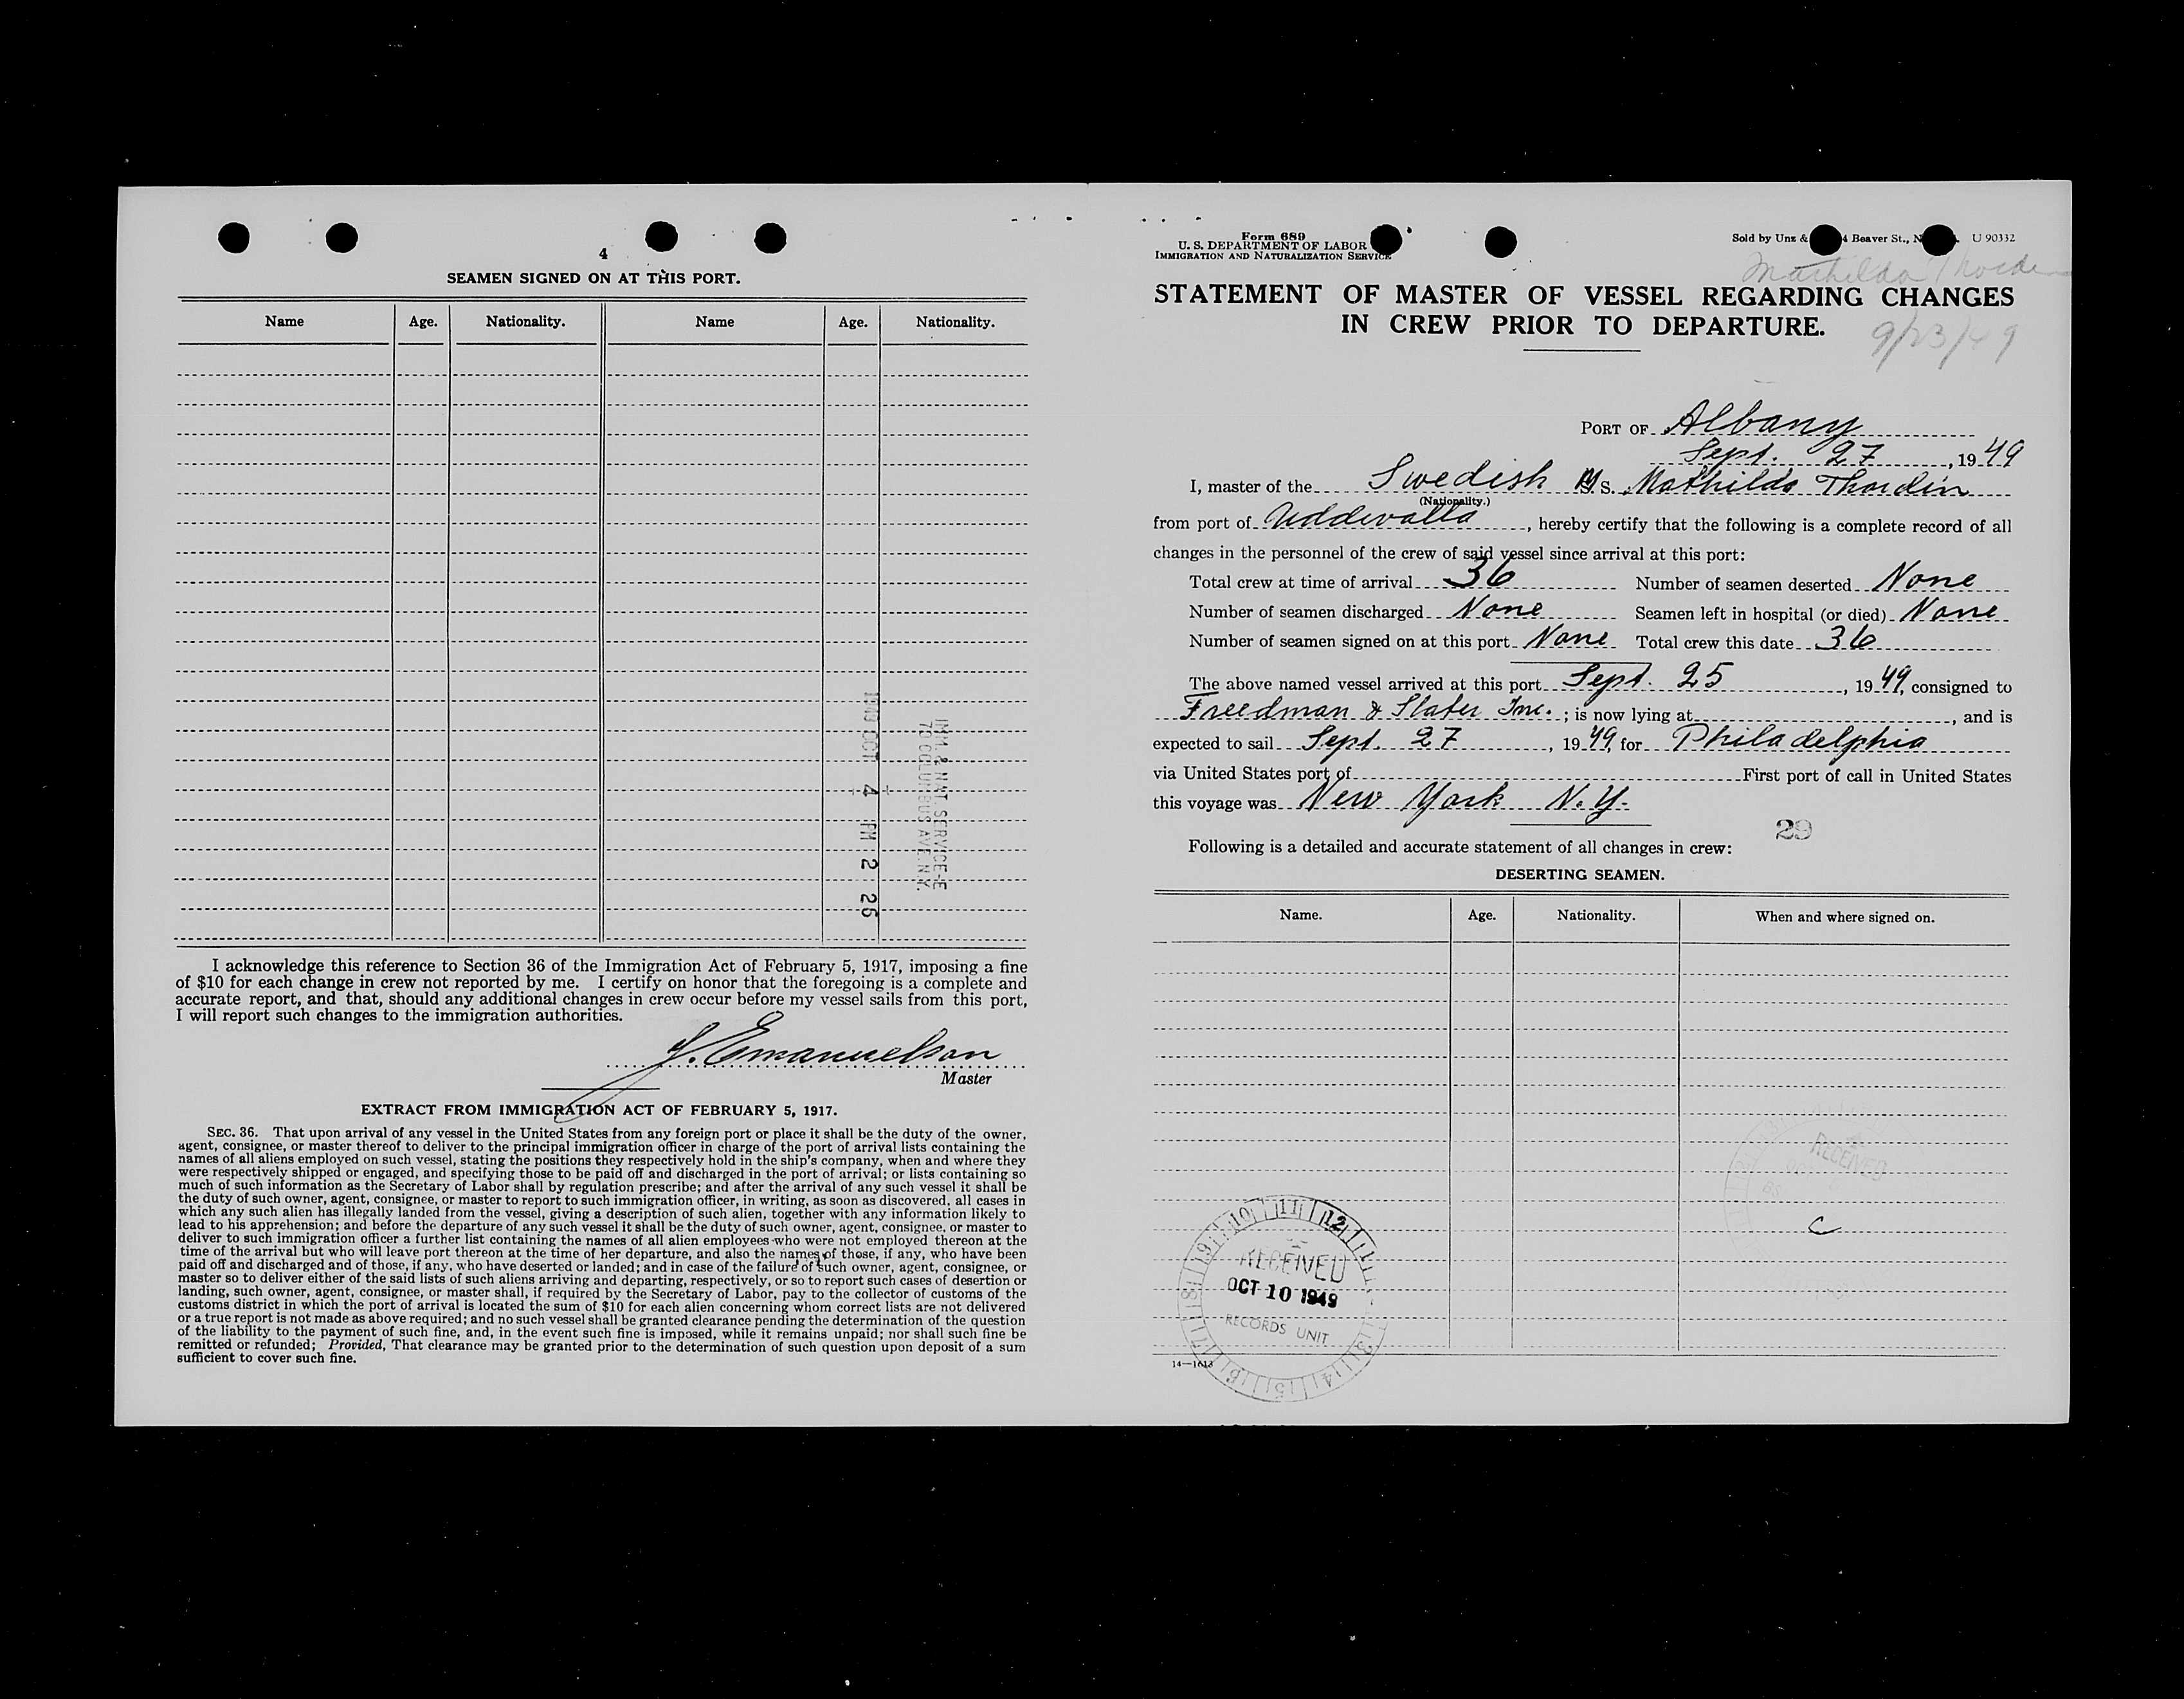 4
SEAMEN SIGNED ON AT THIS PORT.
Name Age. Nationality. Name Age. Nationality.
1949 OCT 4 PM 2 26
IMM. & NAT. SERVICE-E
70 COLUMBUS AVE. N.Y.
I acknowledge this reference to Section 36 of the Immigration Act of February 5, 1917, imposing a fine
of $10 for each change in crew not reported by me. I certify on honor that the foregoing is a complete and
accurate report, and that, should any additional changes in crew occur before my vessel sails from this port,
I will report such changes to the immigration authorities.
J. Emanuelson
Master
EXTRACT FROM IMMIGRATION ACT OF FEBRUARY 5, 1917.
SEC. 36. That upon arrival of any vessel in the United States from any foreign port or place it shall be the duty of the owner,
agent, consignee, or master thereof to deliver to the principal immigration officer in charge of the port of arrival lists containing the
names of all aliens employed on such vessel, stating the positions they respectively hold in the ship's company, when and where they
were respectively shipped or engaged, and specifying those to be paid off and discharged in the port of arrival; or lists containing so
much of such information as the Secretary of Labor shall by regulation prescribe; and after the arrival of any such vessel it shall be
the duty of such owner, agent, consignee, or master to report to such immigration officer, in writing, as soon as discovered, all cases in
which any such alien has illegally landed from the vessel, giving a description of such alien, together with any information likely to
lead to his apprehension; and before the departure of any such vessel it shall be the duty of such owner, agent, consignee, or master to
deliver to such immigration officer a further list containing the names of all alien employees who were not employed thereon at the
time of the arrival but who will leave port thereon at the time of her departure, and also the names of those, if any, who have been
paid off and discharged and of those, if any, who have deserted or landed; and in case of the failure of such owner, agent, consignee, or
master so to deliver either of the said lists of such aliens arriving and departing, respectively, or so to report such cases of desertion or
landing, such owner, agent, consignee, or master shall, if required by the Secretary of Labor, pay to the collector of customs of the
customs district in which the port of arrival is located the sum of $10 for each alien concerning whom correct lists are not delivered
or a true report is not made as above required; and no such vessel shall be granted clearance pending the determination of the question
of the liability to the payment of such fine, and, in the event such fine is imposed, while it remains unpaid; nor shall such fine be
remitted or refunded; Provided, That clearance may be granted prior to the determination of such question upon deposit of a sum
sufficient to cover such fine.
Form 689
U. S. DEPARTMENT OF LABOR
IMMIGRATION AND NATURALIZATION SERVICE
Sold by Unz & 4 Beaver St., N U 90332
Mathilda Thorden
STATEMENT OF MASTER OF VESSEL REGARDING CHANGES
IN CREW PRIOR TO DEPARTURE.
9/23/49
PORT OF Albany
Sept. 27, 1949
I, master of the Swedish M. S. Mathilda Thordén
(Nationality.)
from port of Uddevalla, hereby certify that the following is a complete record of all
changes in the personnel of the crew of said vessel since arrival at this port:
Total crew at time of arrival 36 Number of seamen deserted None
Number of seamen discharged None Seamen left in hospital (or died) None
Number of seamen signed on at this port None Total crew this date 36
The above named vessel arrived at this port Sept. 25, 1949, consigned to
Freedman & Slater Inc.; is now lying at, and is
expected to sail Sept. 27, 1949, for Philadelphia
via United States port of First port of call in United States
this voyage was New York N.Y.
29
Following is a detailed and accurate statement of all changes in crew:
DESERTING SEAMEN.
Name. Age. Nationality. When and where signed on.
RECEIVED
C
10 11 12
RECEIVED
OCT 10 1949
RECORDS UNIT
14—1613